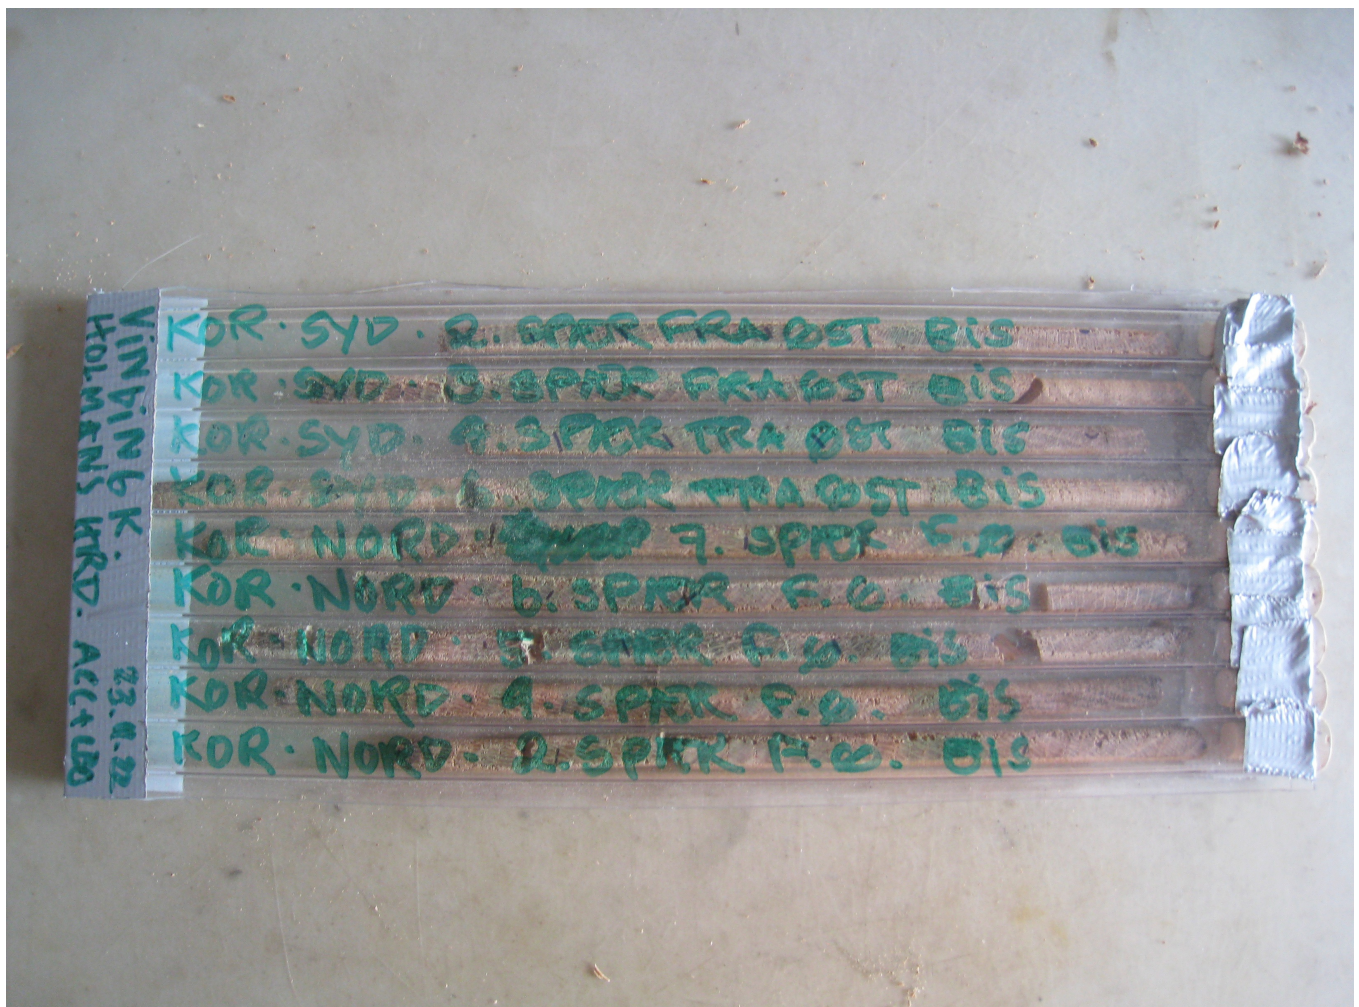 VINDING K.
HOLMANS HRD. AEC + UBO
23.11.22
KOR · SYD · 2. SPÆR FRA ØST BIS
KOR · SYD · 3. SPÆR FRA ØST BIS
KOR · SYD · 4. SPÆR FRA ØST BIS
KOR · SYD · 6. SPÆR FRA ØST BIS
KOR · NORD · 7. SPÆR F. Ø. BIS
KOR · NORD · 6. SPÆR F. Ø. BIS
KOR · NORD · SPÆR F. Ø. BIS
KOR · NORD · 4. SPÆR F. Ø. BIS
KOR · NORD · 2. SPÆR F. Ø. BIS